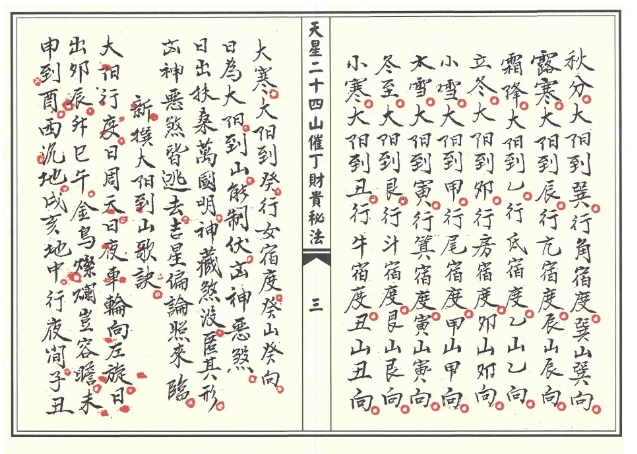 秋分大阳到巽行角宿度巽山巽向
露寒大阳到辰行亢宿度辰山辰向
霜降大阳到乙行氐宿度乙山乙向
立冬大阳到卯行房宿度卯山卯向
小雪大阳到甲行尾宿度甲山甲向
大雪大阳到寅行箕宿度寅山寅向
冬至大阳到艮行斗宿度艮山艮向
小寒大阳到丑行牛宿度丑山丑向
天星二十四山催丁財貴秘法
三
大寒大阳到癸行女宿度癸山癸向
日為大阳到山能制伏凶神惡煞
日出扶桑萬國明神藏煞没匿其形
凶神惡煞皆逃去吉星偏論照來臨
新撰大阳到山歌訣
大阳行度日周天日夜車輪向左旋日
出卯辰升巳午金烏燦爛豈容瞻未
申到酉西沉地戌亥地中行夜间子丑